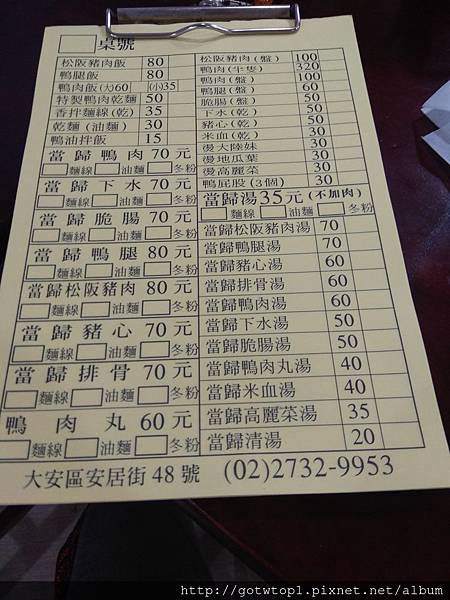 桌號
松阪豬肉飯 80
鴨腿飯 80
鴨肉飯(大)60 (小)35
特製鴨肉乾麵 50
香拌麵線(乾) 35
乾麵(油麵) 30
鴨油拌飯 15
當歸鴨肉 70元
麵線 油麵 冬粉
當歸下水 70元
麵線 油麵 冬粉
當歸脆腸 70元
麵線 油麵 冬粉
當歸鴨腿 80元
麵線 油麵 冬粉
當歸松阪豬肉 80元
麵線 油麵 冬粉
當歸豬心 70元
麵線 油麵 冬粉
當歸排骨 70元
麵線 油麵 冬粉
鴨肉丸 60元
麵線 油麵 冬粉
松阪豬肉(盤) 100
鴨肉(半隻) 320
鴨肉(盤) 100
鴨腿(盤) 60
脆腸(盤) 50
下水(乾) 50
豬心(乾) 50
米血(乾) 30
燙大陸妹 30
燙地瓜葉 30
燙高麗菜 30
鴨屁股(3個) 30
當歸湯35元(不加肉)
麵線 油麵 冬粉
當歸松阪豬肉湯 70
當歸鴨腿湯 70
當歸豬心湯 60
當歸排骨湯 60
當歸鴨肉湯 60
當歸下水湯 50
當歸脆腸湯 50
當歸鴨肉丸湯 40
當歸米血湯 40
當歸高麗菜湯 35
當歸清湯 20
大安區安居街48號 (02)2732-9953
http://gotwtop1.pixnet.net/album